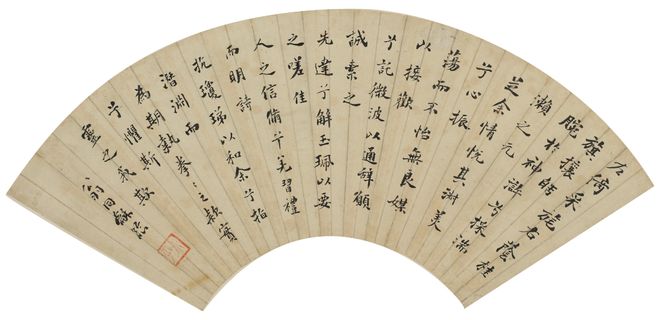 左倚采旄右蔭桂
旗攘皓
腕於神滸兮採湍
瀨之元
芝余情悅其淑美
兮心振
蕩而不怡無良媒
以接歡
兮託微波以通辭願
誠素之
先達兮解玉珮以要
之嗟佳
人之信脩兮羌習禮
而明詩
抗瓊珶以和余兮指
潛淵而
為期執拳〻之款實
兮懼斯
靈之我欺
翁同龢